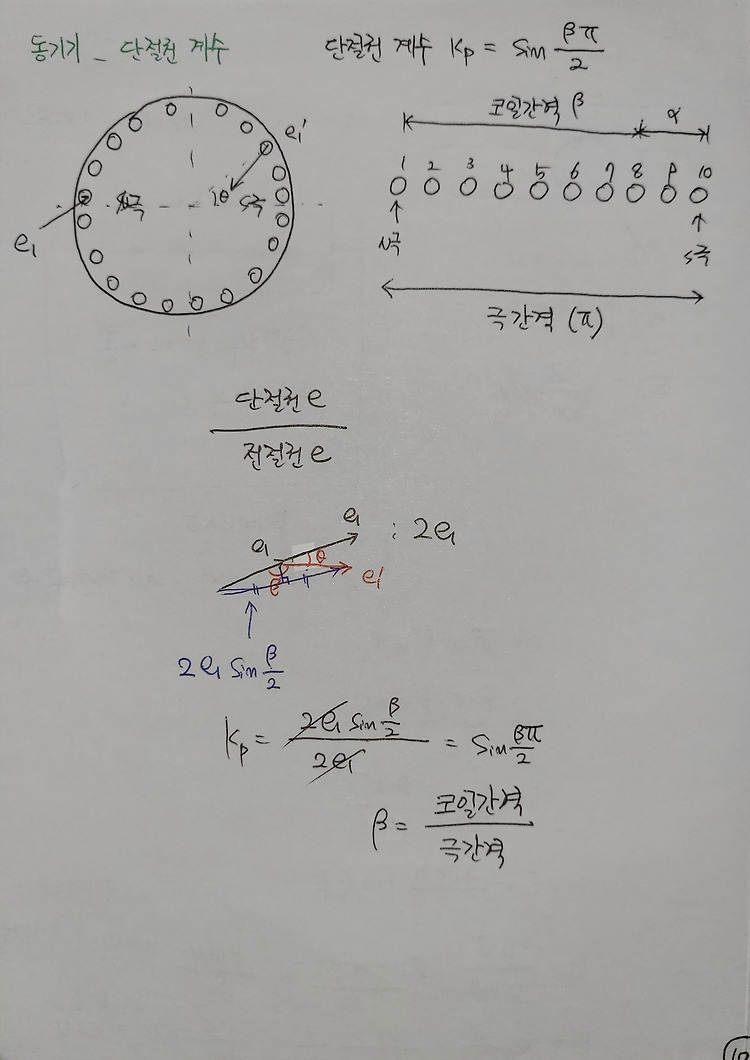 동기기 _ 단절권 계수
단절권 계수 Kp = Sin βπ/2
코일간격 β
α
1 2 3 4 5 6 7 8 9 10
N극
S극
극간격 (π)
e₁
e₁'
N극
θ
S극
단절권 e
전절권 e
e₁
e₁
: 2e₁
θ
e₁'
2e₁ Sin β/2
Kp = 2e₁ Sin β/2 / 2e₁ = Sin βπ/2
β = 코일간격 / 극간격